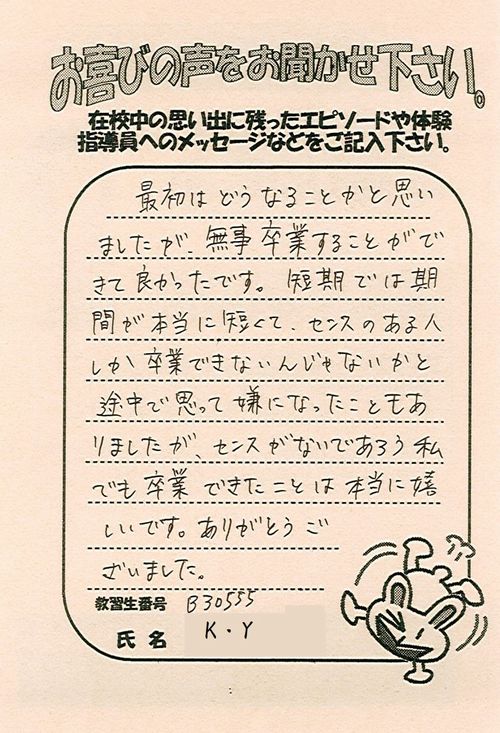 お喜びの声をお聞かせ下さい。
在校中の思い出に残ったエピソードや体験
指導員へのメッセージなどをご記入下さい。
最初はどうなることかと思い
ましたが、無事卒業することがで
きて良かったです。短期では期
間が本当に短くて、センスのある人
しか卒業できないんじゃないかと
途中で思って嫌になったこともあ
りましたが、センスがないであろう私
でも卒業できたことは本当に嬉
しいです。ありがとうご
ざいました。
教習生番号 B30555
氏名 K・Y